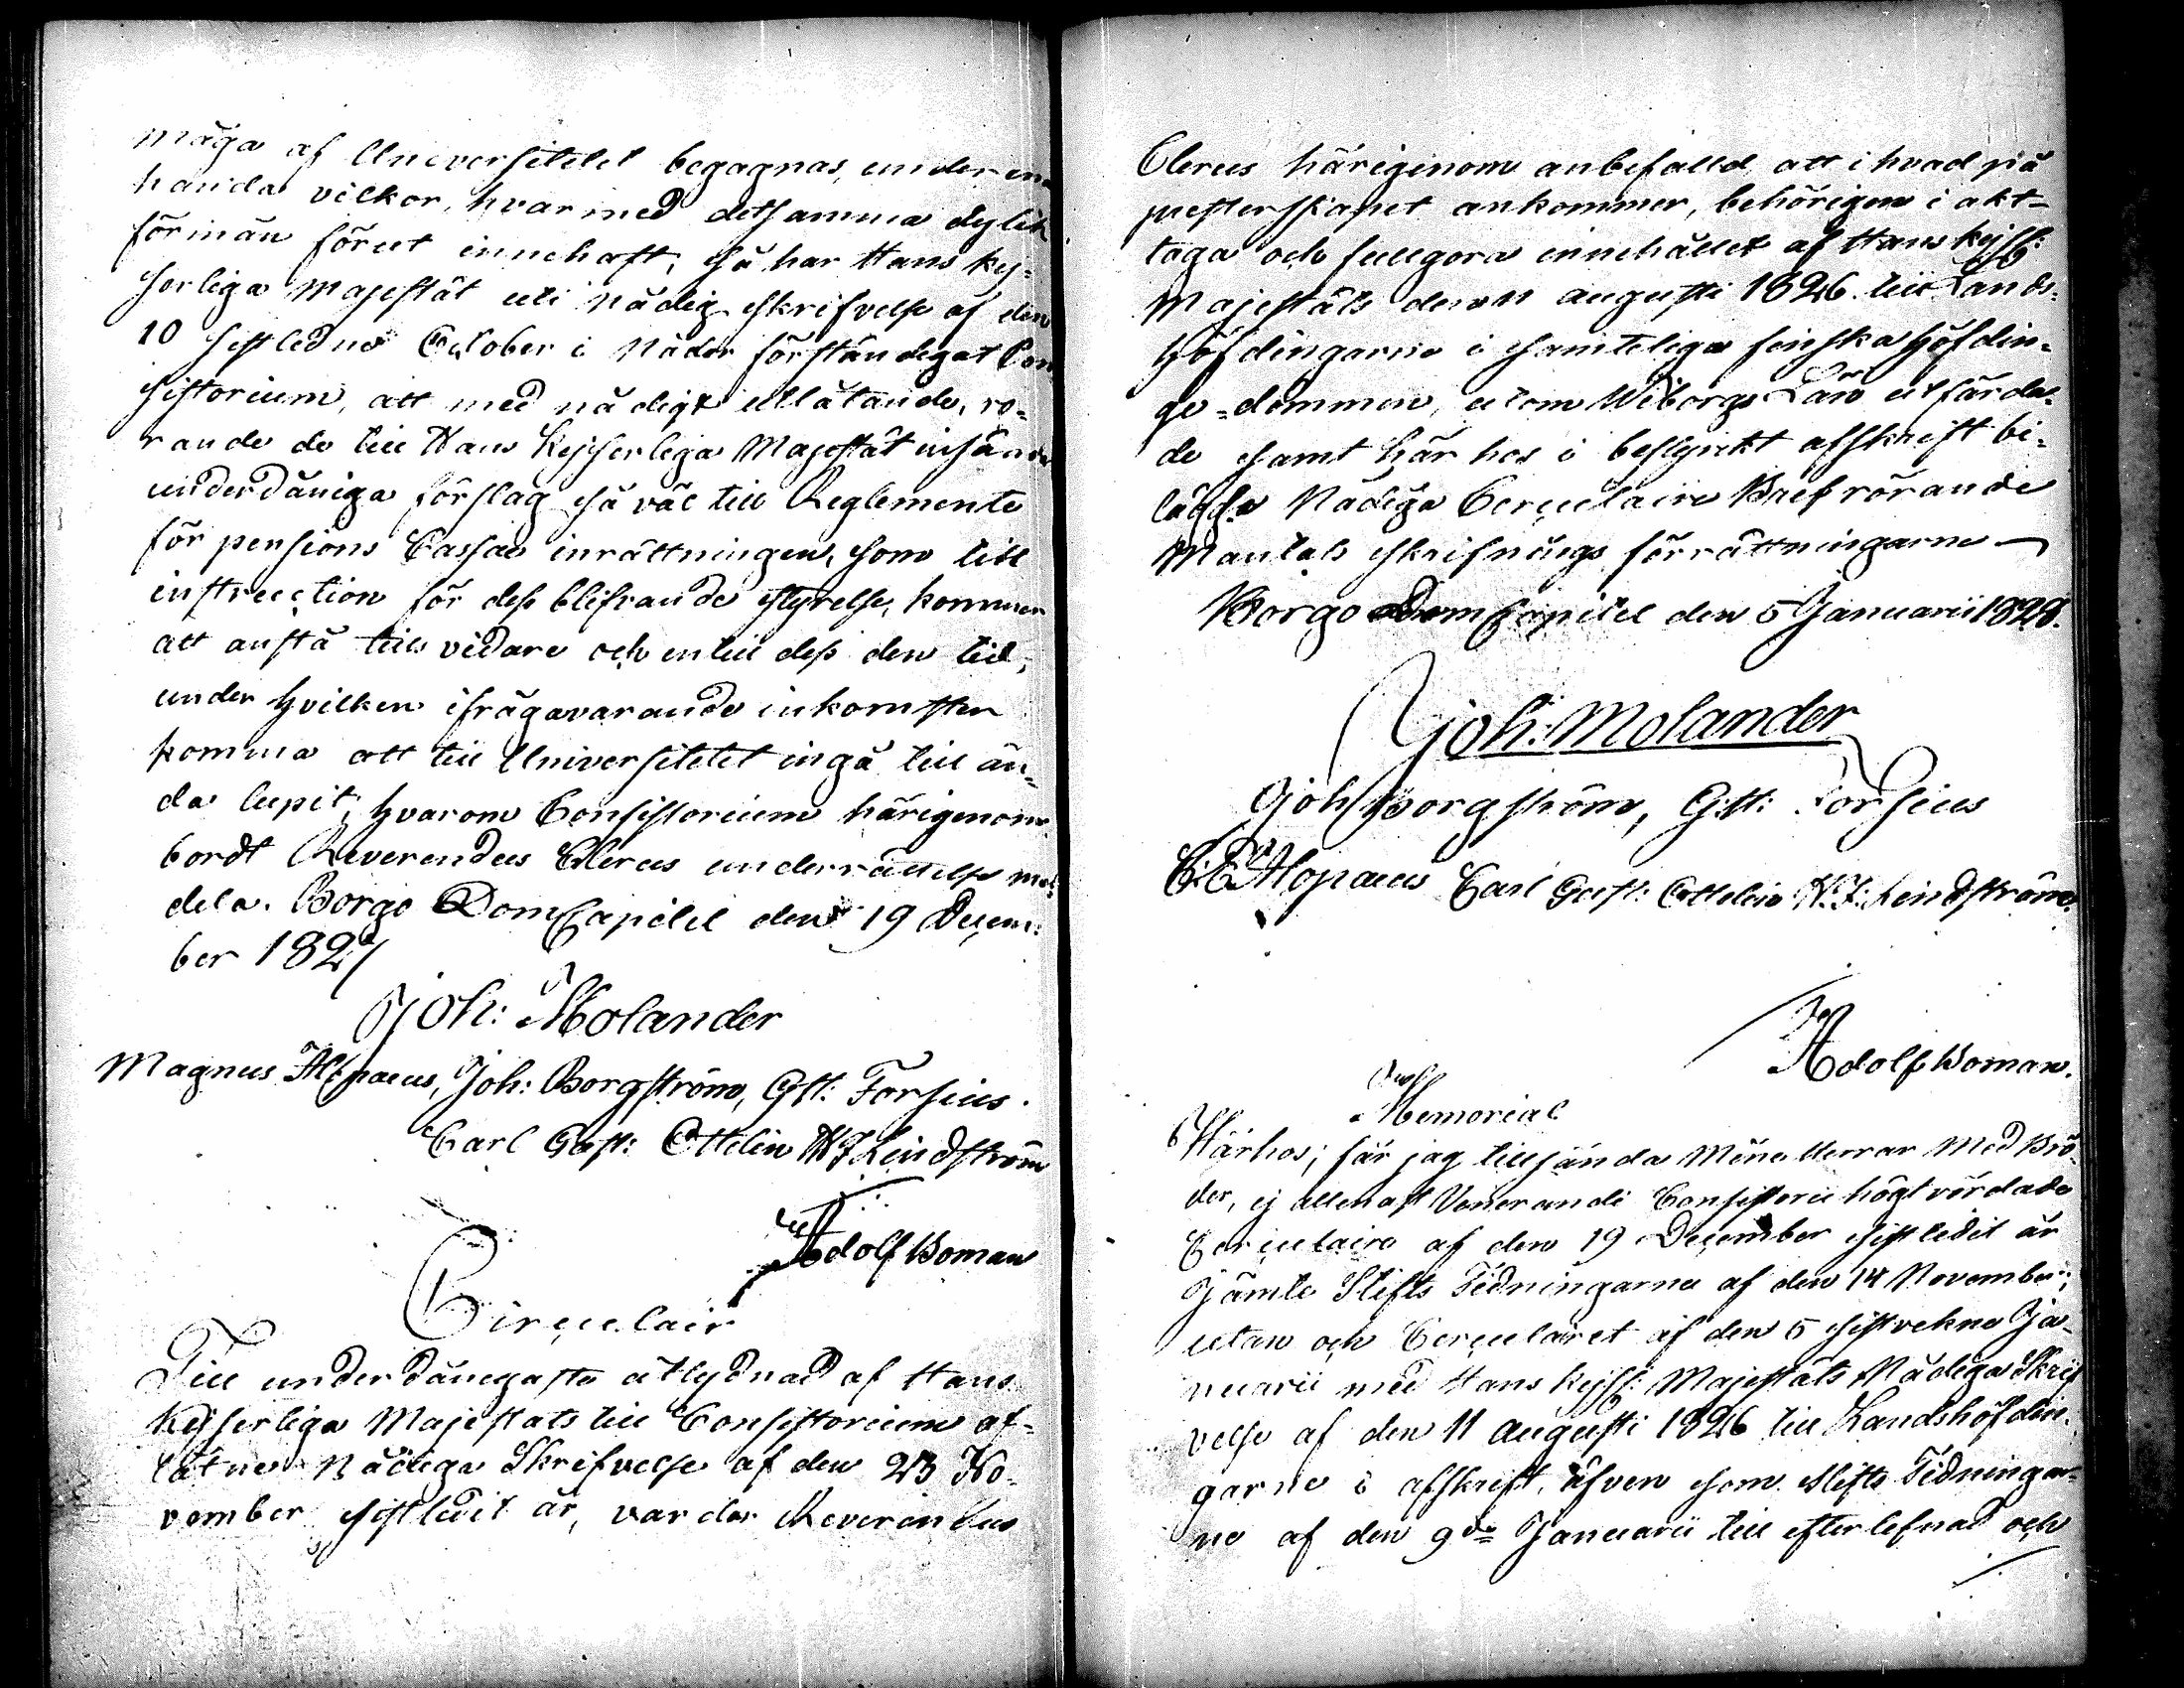 måga af Universitetet begagnas, under en
handa vilkor, hvarmed detsamma dylik
förmån förut innehaft; så har Hans Kej-
serliga Majestät uti Nådig skrifvelse af den
10 sistledne October i Nåder förständigat Con
sistorium, att med nådigt utlåtande, rö-
rande de till Hans Kejserliga Majestät insände
underdåniga förslag så väl till Reglemente
för pensions Cassae inrättningen, som till
instruction för dess blifvande styrelse, kommer
att anstå tills vidare och intill dess den tid,
under hvilken ifrågavarande inkomster
komma att till Universitetet ingå till än-
da lupit; hvarom Consistorium härigenom
bordt Reverendus Clerus underrättelse med-
dela. Borgo DomCapitel den 19 Decem-
ber 1827
Joh: Molander
Magnus Alopaeus, Joh: Borgström, Gst: Forsius.
Carl Gust: Ottelin A J Lindström
Adolf Boman
Circulair
Till underdånigaste åtlydnad af Hans
Kejserliga Majestäts till Consistorium af-
låtne Nådiga Skrifvelse af den 23 No-
vember sistledit år, varder Reverendus
Clerus härigenom anbefalld att i hvad på
presterskapet ankommer, behörigen i akt-
taga och fullgöra innehållet af Hans Kejsl:
Majestäts den 11 augusti 1826 till Lands-
höfdingarne i samteliga finska höfdin-
ge-dömmen, utom Wiborgs Län utfärda-
de samt här hos i bestyrkt afskrift bi-
lagde Nådiga Circulaire Bref rörande
Mantals skrifnings förrättningarne
Borgo DomCapitel den 5 Januarii 1828.
Joh: Molander
Joh Borgström, Gst: Forsius
Alopaeus Carl Gust: Ottelin A. J: Lindström.
Adolf Boman.
Memorial
Härhos, får jag tillsända Mine Herrar Med Brö-
der, ej allenast Venerandi Consistorii högtvördade
Circulaire af den 19 December sistledit år
Jämte Stifts Tidningarne af den 14 November;
utan och Circulairet af den 5 sistvekne Ja-
nuarii med Hans Kejsl: Majestäts Nådiga Skrif
velse af den 11 augusti 1826 till Landshöfdin-
garne i afskrift, äfven som Stifts Tidningar-
ne af den 9de Januarii till efterlefnad och